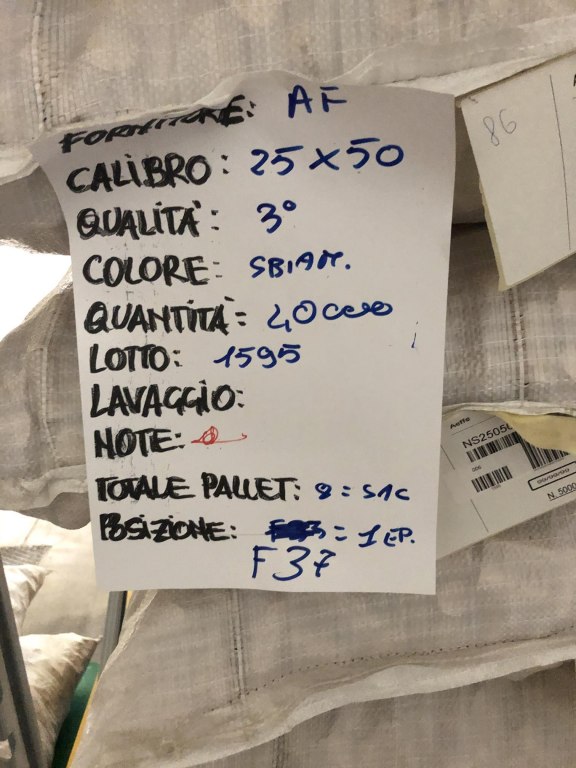 FORNITORE: AF
CALIBRO: 25 x 50
QUALITÀ: 3°
COLORE: SBIAM.
QUANTITÀ: 40000
LOTTO: 1595
LAVAGGIO:
NOTE:
TOTALE PALLET: 8 = SAC
POSIZIONE: = 1 EP.
F37
86
Aeffe
006
99/99/99
N. 5000